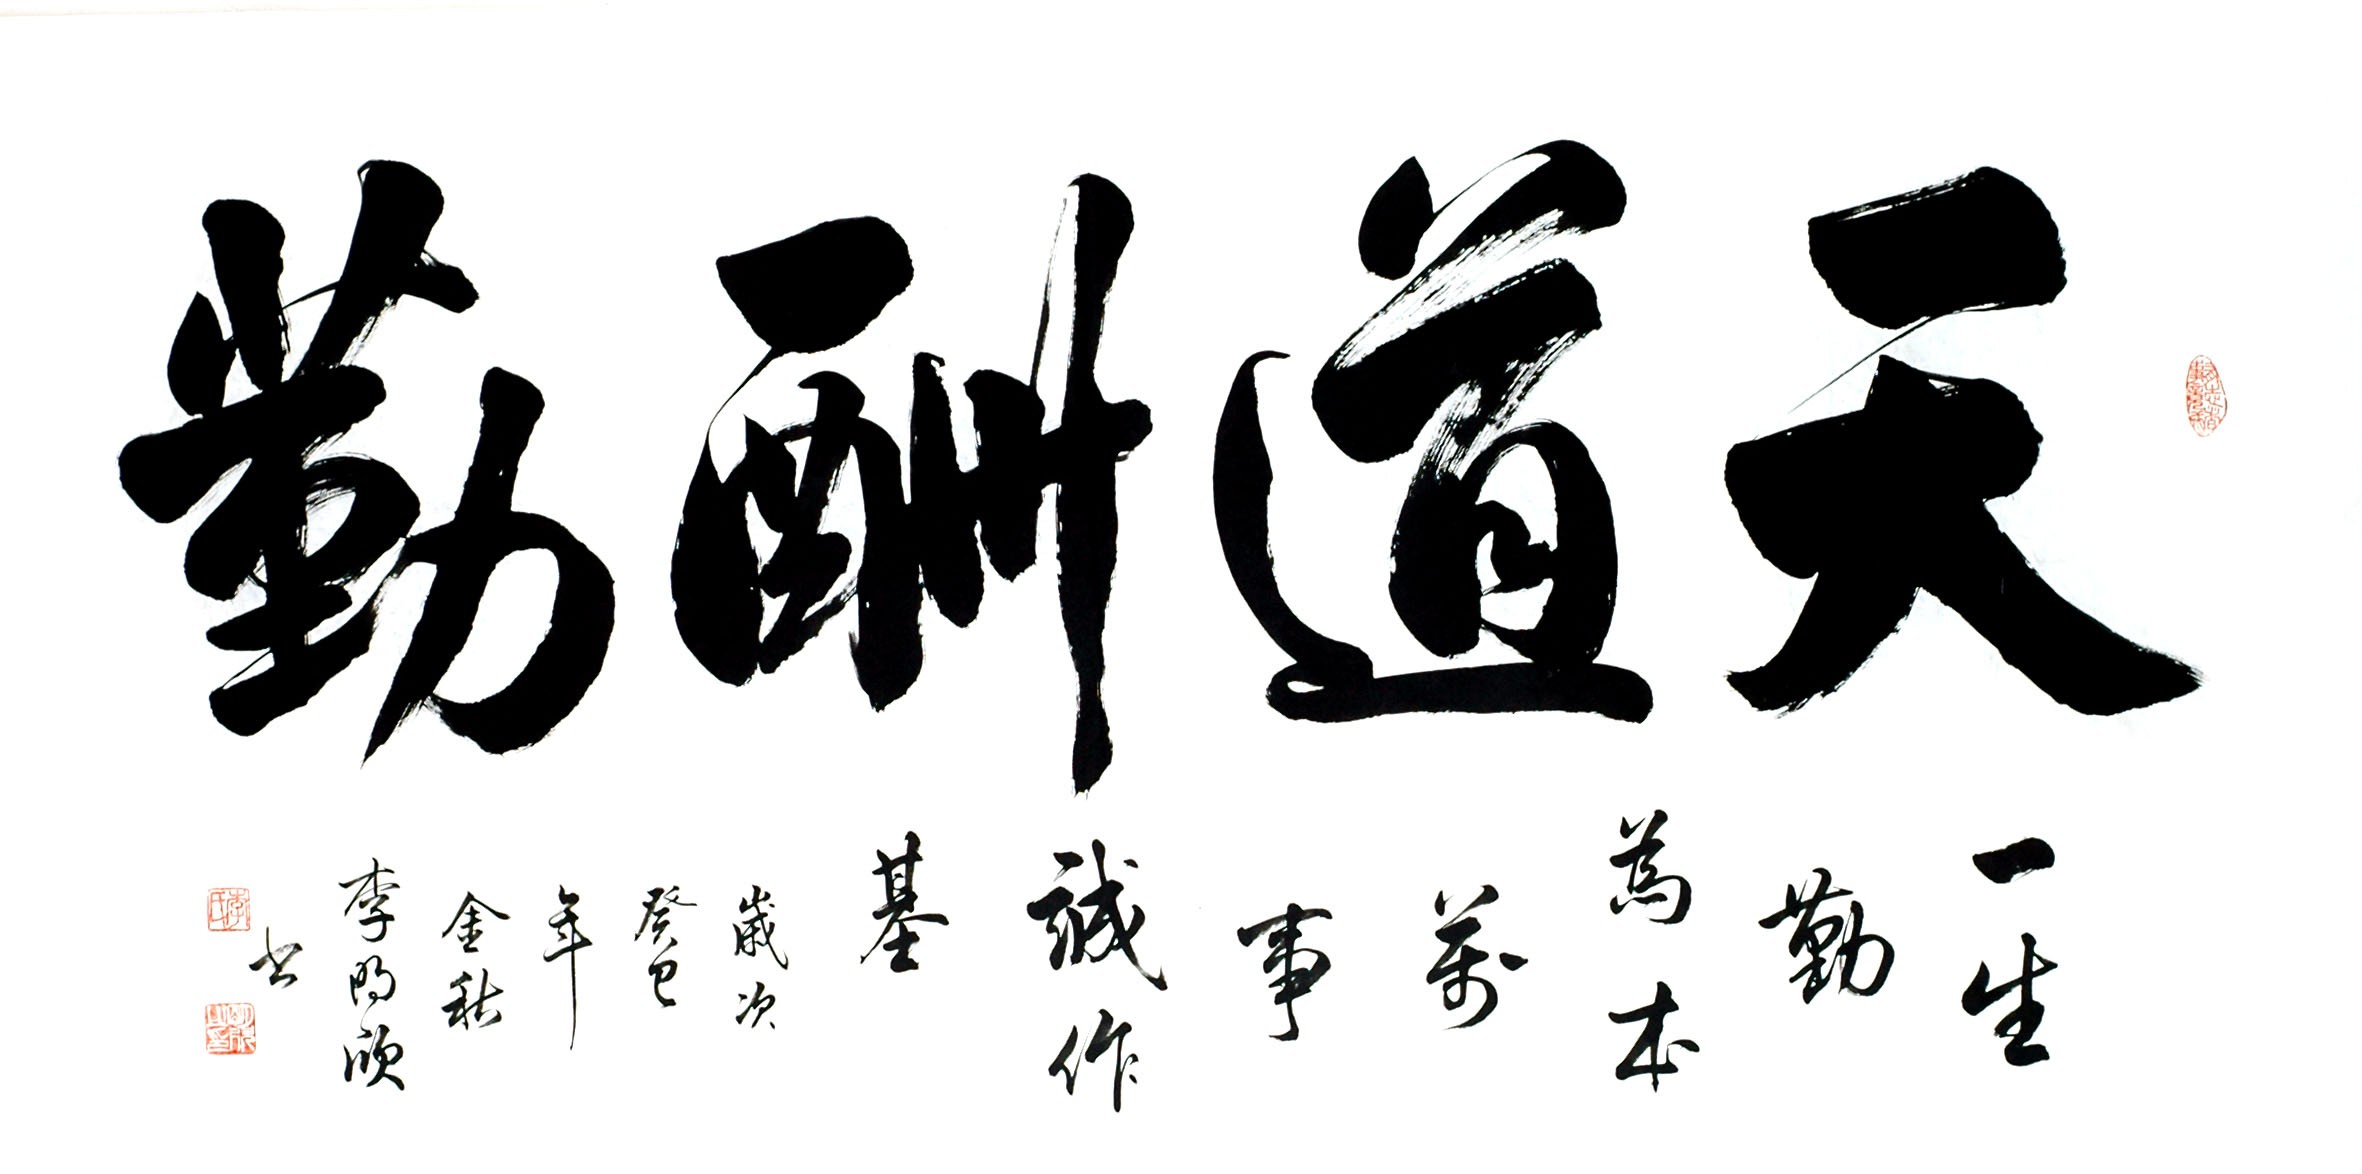 天道酬勤
一生
勤
為本
萬
事
誠作
基
歲次
癸巳
年
金秋
李明欣
書
李氏